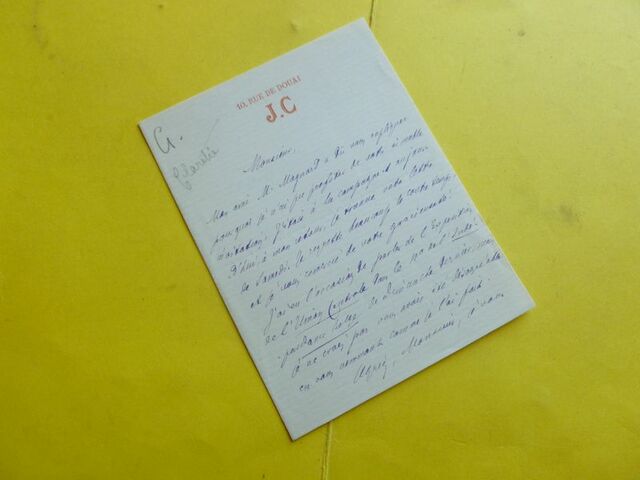 10, RUE DE DOUAI
J.C
G.
Claretie
Monsieur,
Mon ami M. Magnard a dû vous expliquer
pourquoi je n'ai pu profiter de votre aimable
invitation. J'étais à la campagne et aujour-
d'hui à mon retour, je trouve votre lettre
de Samedi. Je regrette beaucoup le contretemps
et je vous remercie de votre gracieuseté.
J'ai eu l'occasion de parler de l'Exposition
de l'Union Centrale dans le no de l'Indé-
pendance belge de Dimanche dernier
je ne crois pas vous avoir été désagréable
en vous nommant comme je l'ai fait.
Agréez, Monsieur,